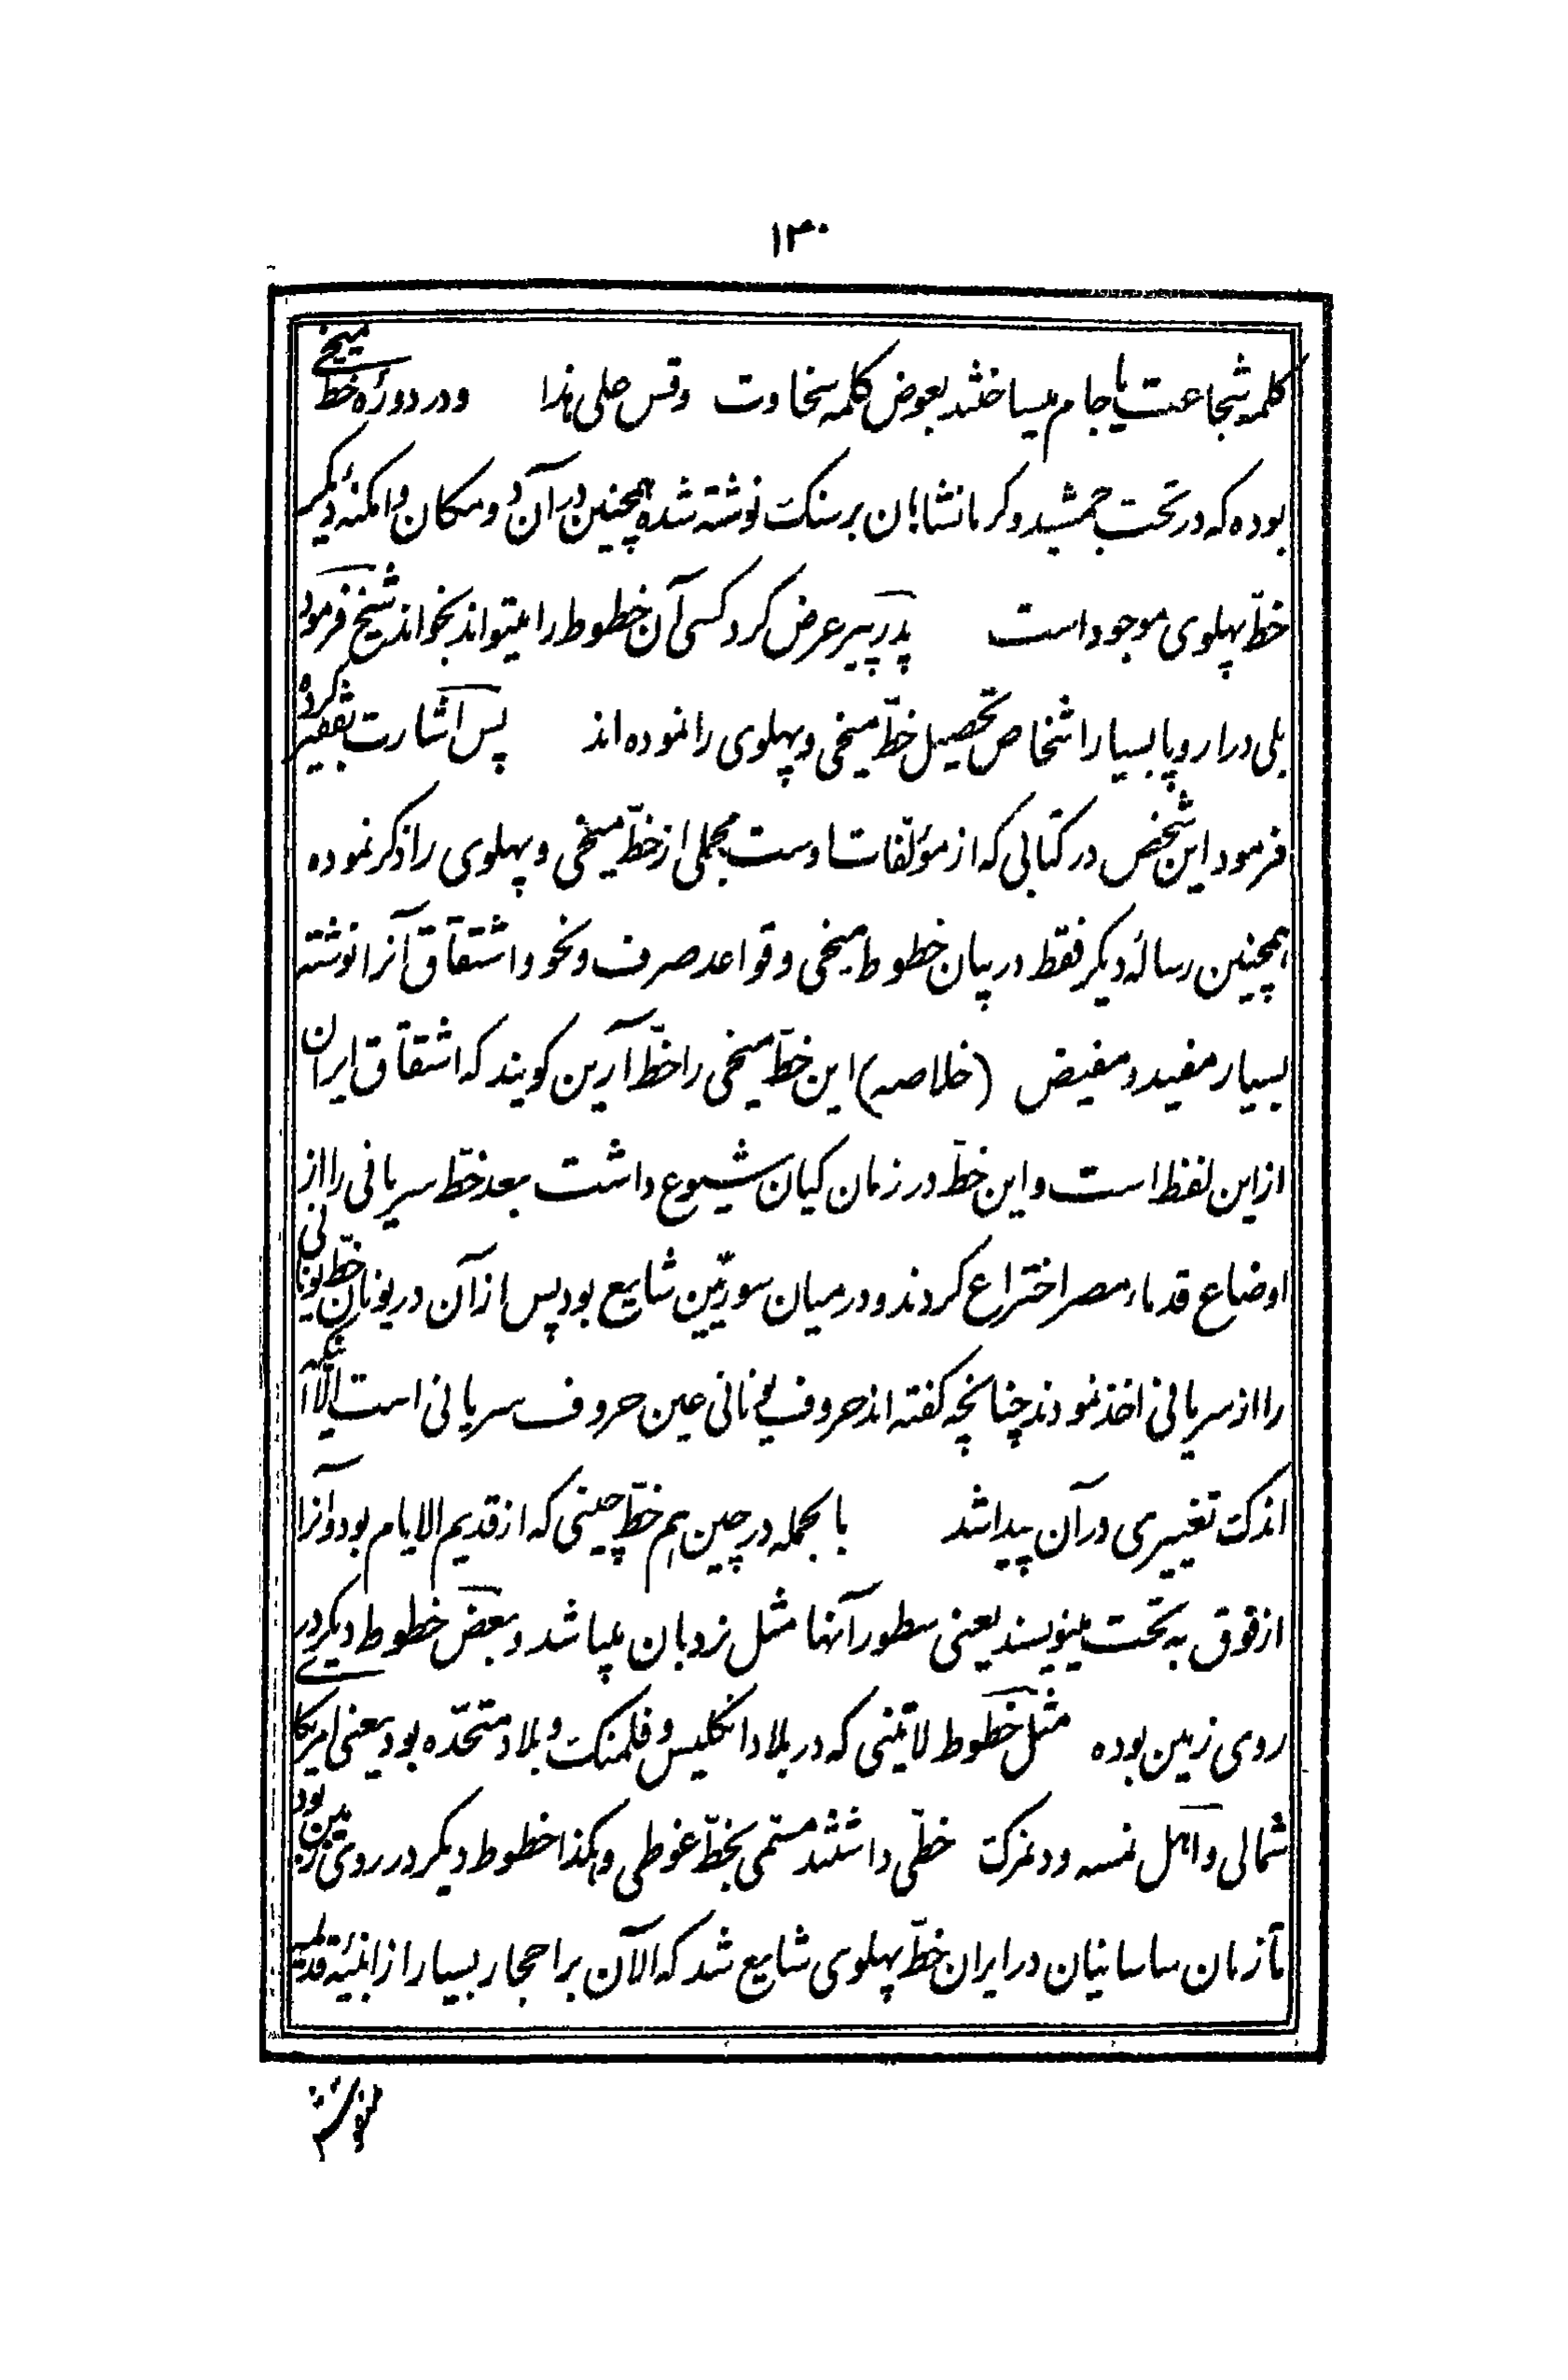 ۱۳۰
کلمه شجاعت یا جام میساختند بعوض کلمه سخاوت وقس علی هذا ودر دورهٔ خط میخی
بوده که در تخت جمشید وکرمانشاهان بر سنک نوشته شده همچنین در آن دو مکان وامکنهٔ دیکر
خطّ پهلوی موجود است پدر پیر عرض کرد کسی آن خطوط را میتواند بخواند شیخ فرمود
بلی در اروپا بسیار اشخاص تحصیل خطّ میخی وپهلوی را نموده اند پس اشارت بفقیر کرده
فرمود این شخص در کتابی که از مؤلّفات اوست مجملی از خطّ میخی وپهلوی را ذکر نموده
همچنین رساله دیکر فقط در بیان خطوط میخی وقواعد صرف ونحو واشتقاق آنرا نوشته
بسیار مفید ومفیض (خلاصه) این خطّ میخی را خطّ آرین کویند که اشتقاق ایران
از این لفظ است واین خطّ در زمان کیان شیوع داشت بعد خطّ سریانی را از
اوضاع قدماء مصر اختراع کردند ودر میان سوریّین شایع بود پس از آن در یونان خطّ یونانی
را از سریانی اخذ نمودند چنانچه کفته اند حروف یونانی عین حروف سریانی است الّا آنکه
اندک تغییری در آن پیدا شد بالجمله در چین هم خطّ چینی که از قدیم الایام بود وآنرا
از فوق به تحت مینویسند یعنی سطور آنها مثل نردبان میباشد وبعض خطوط دیکر در
روی زمین بوده مثل خطوط لاتینی که در بلاد انکلیس وفلمنک وبلاد متحدّه بود یعنی امریکای
شمالی واهل نمسه ودنمرک خطّی داشتند مسمّی بخطّ غوطی وهکذا خطوط دیکر در روی زمین بود
تا زمان ساسانیان در ایران خطّ پهلوی شایع شد که الآن بر احجار بسیار از ابنیهٔ قدیمه
نوشته